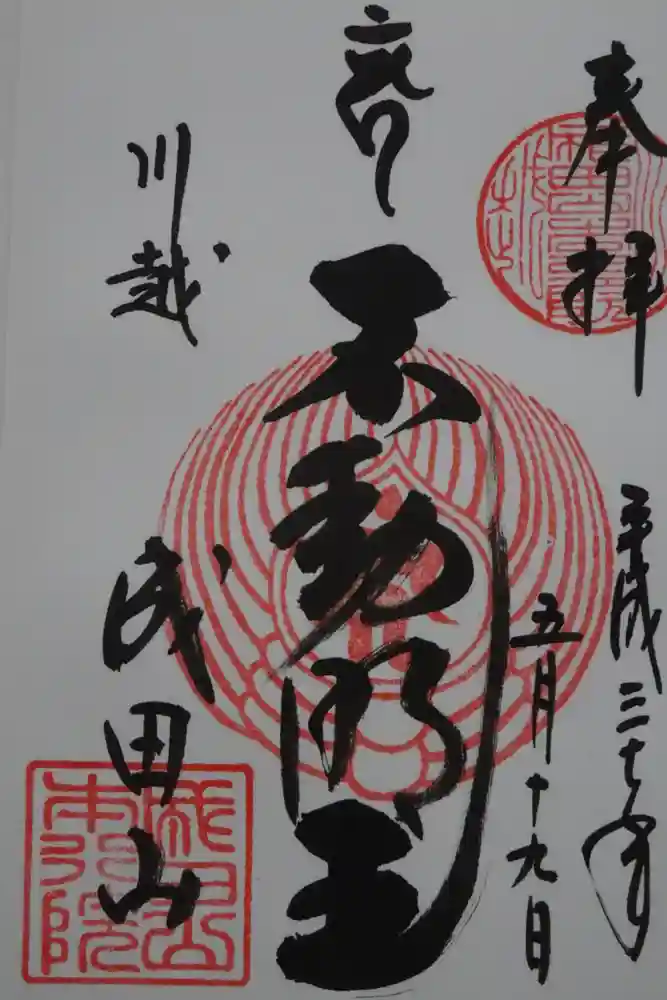 奉拝
平成三十年
五月十九日
不動明王
川越
成田山
成田山
本行院